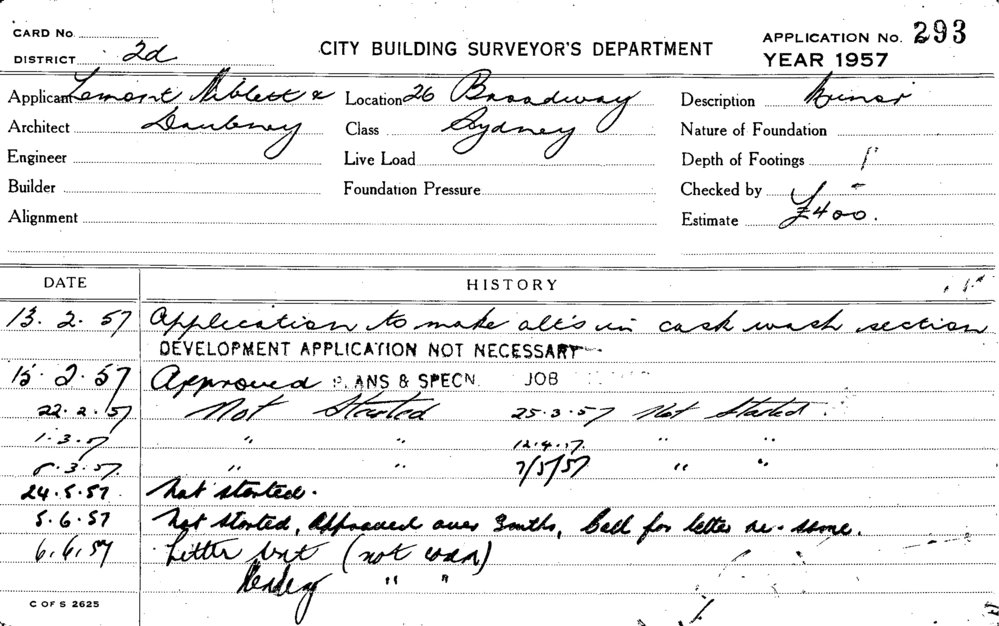 CARD No.
CITY BUILDING SURVEYOR'S DEPARTMENT
APPLICATION No. 293
DISTRICT 2d
YEAR 1957
Applicant Lemont Niblett &
Location 26 Broadway
Description Minor
Architect Daubney
Class Sydney
Nature of Foundation
Engineer
Live Load
Depth of Footings
Builder
Foundation Pressure
Checked by
Alignment
Estimate £400.
DATE HISTORY
13. 2. 57 Application to make alt's in cask wash section
DEVELOPMENT APPLICATION NOT NECESSARY
15. 2. 57 Approved PLANS & SPECN. JOB
22. 2. 57 Not Started 25.3.57 Not Started.
1. 3. 57 " " 12.4.57. " "
8. 3. 57. " " 7/5/57 " "
24.5.57. Not started.
5.6.57 Not started, Approved over 3mths, Call for letter re-same.
6.6.57 Letter (not
" "
C OF S 2625